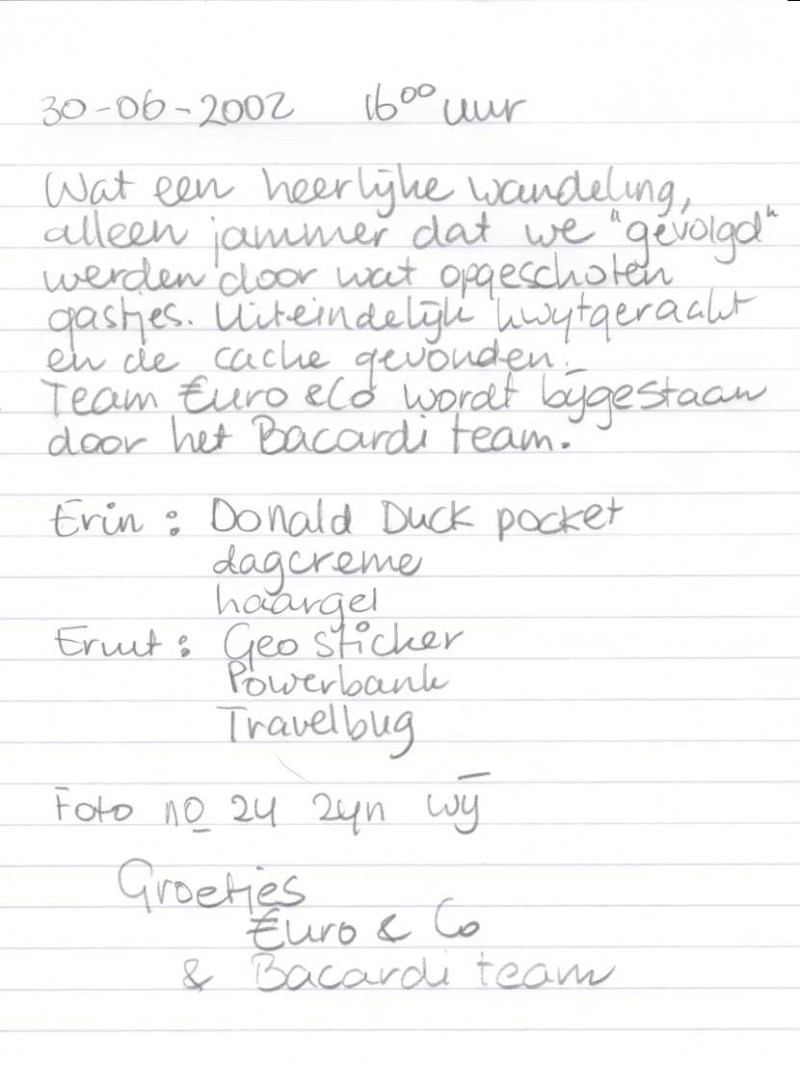 30-06-2002 16⁰⁰ uur
Wat een heerlijke wandeling,
alleen jammer dat we "gevolgd"
werden door wat opgeschoten
gastjes. Uiteindelijk kwijtgeraakt
en de cache gevonden.
Team €uro &Co wordt bijgestaan
door het Bacardi team.
Erin : Donald Duck pocket
dagcreme
haargel
Eruit : Geo sticker
Powerbank
Travelbug
Foto no 24 zijn wij
Groetjes
€uro & Co
& Bacardi team